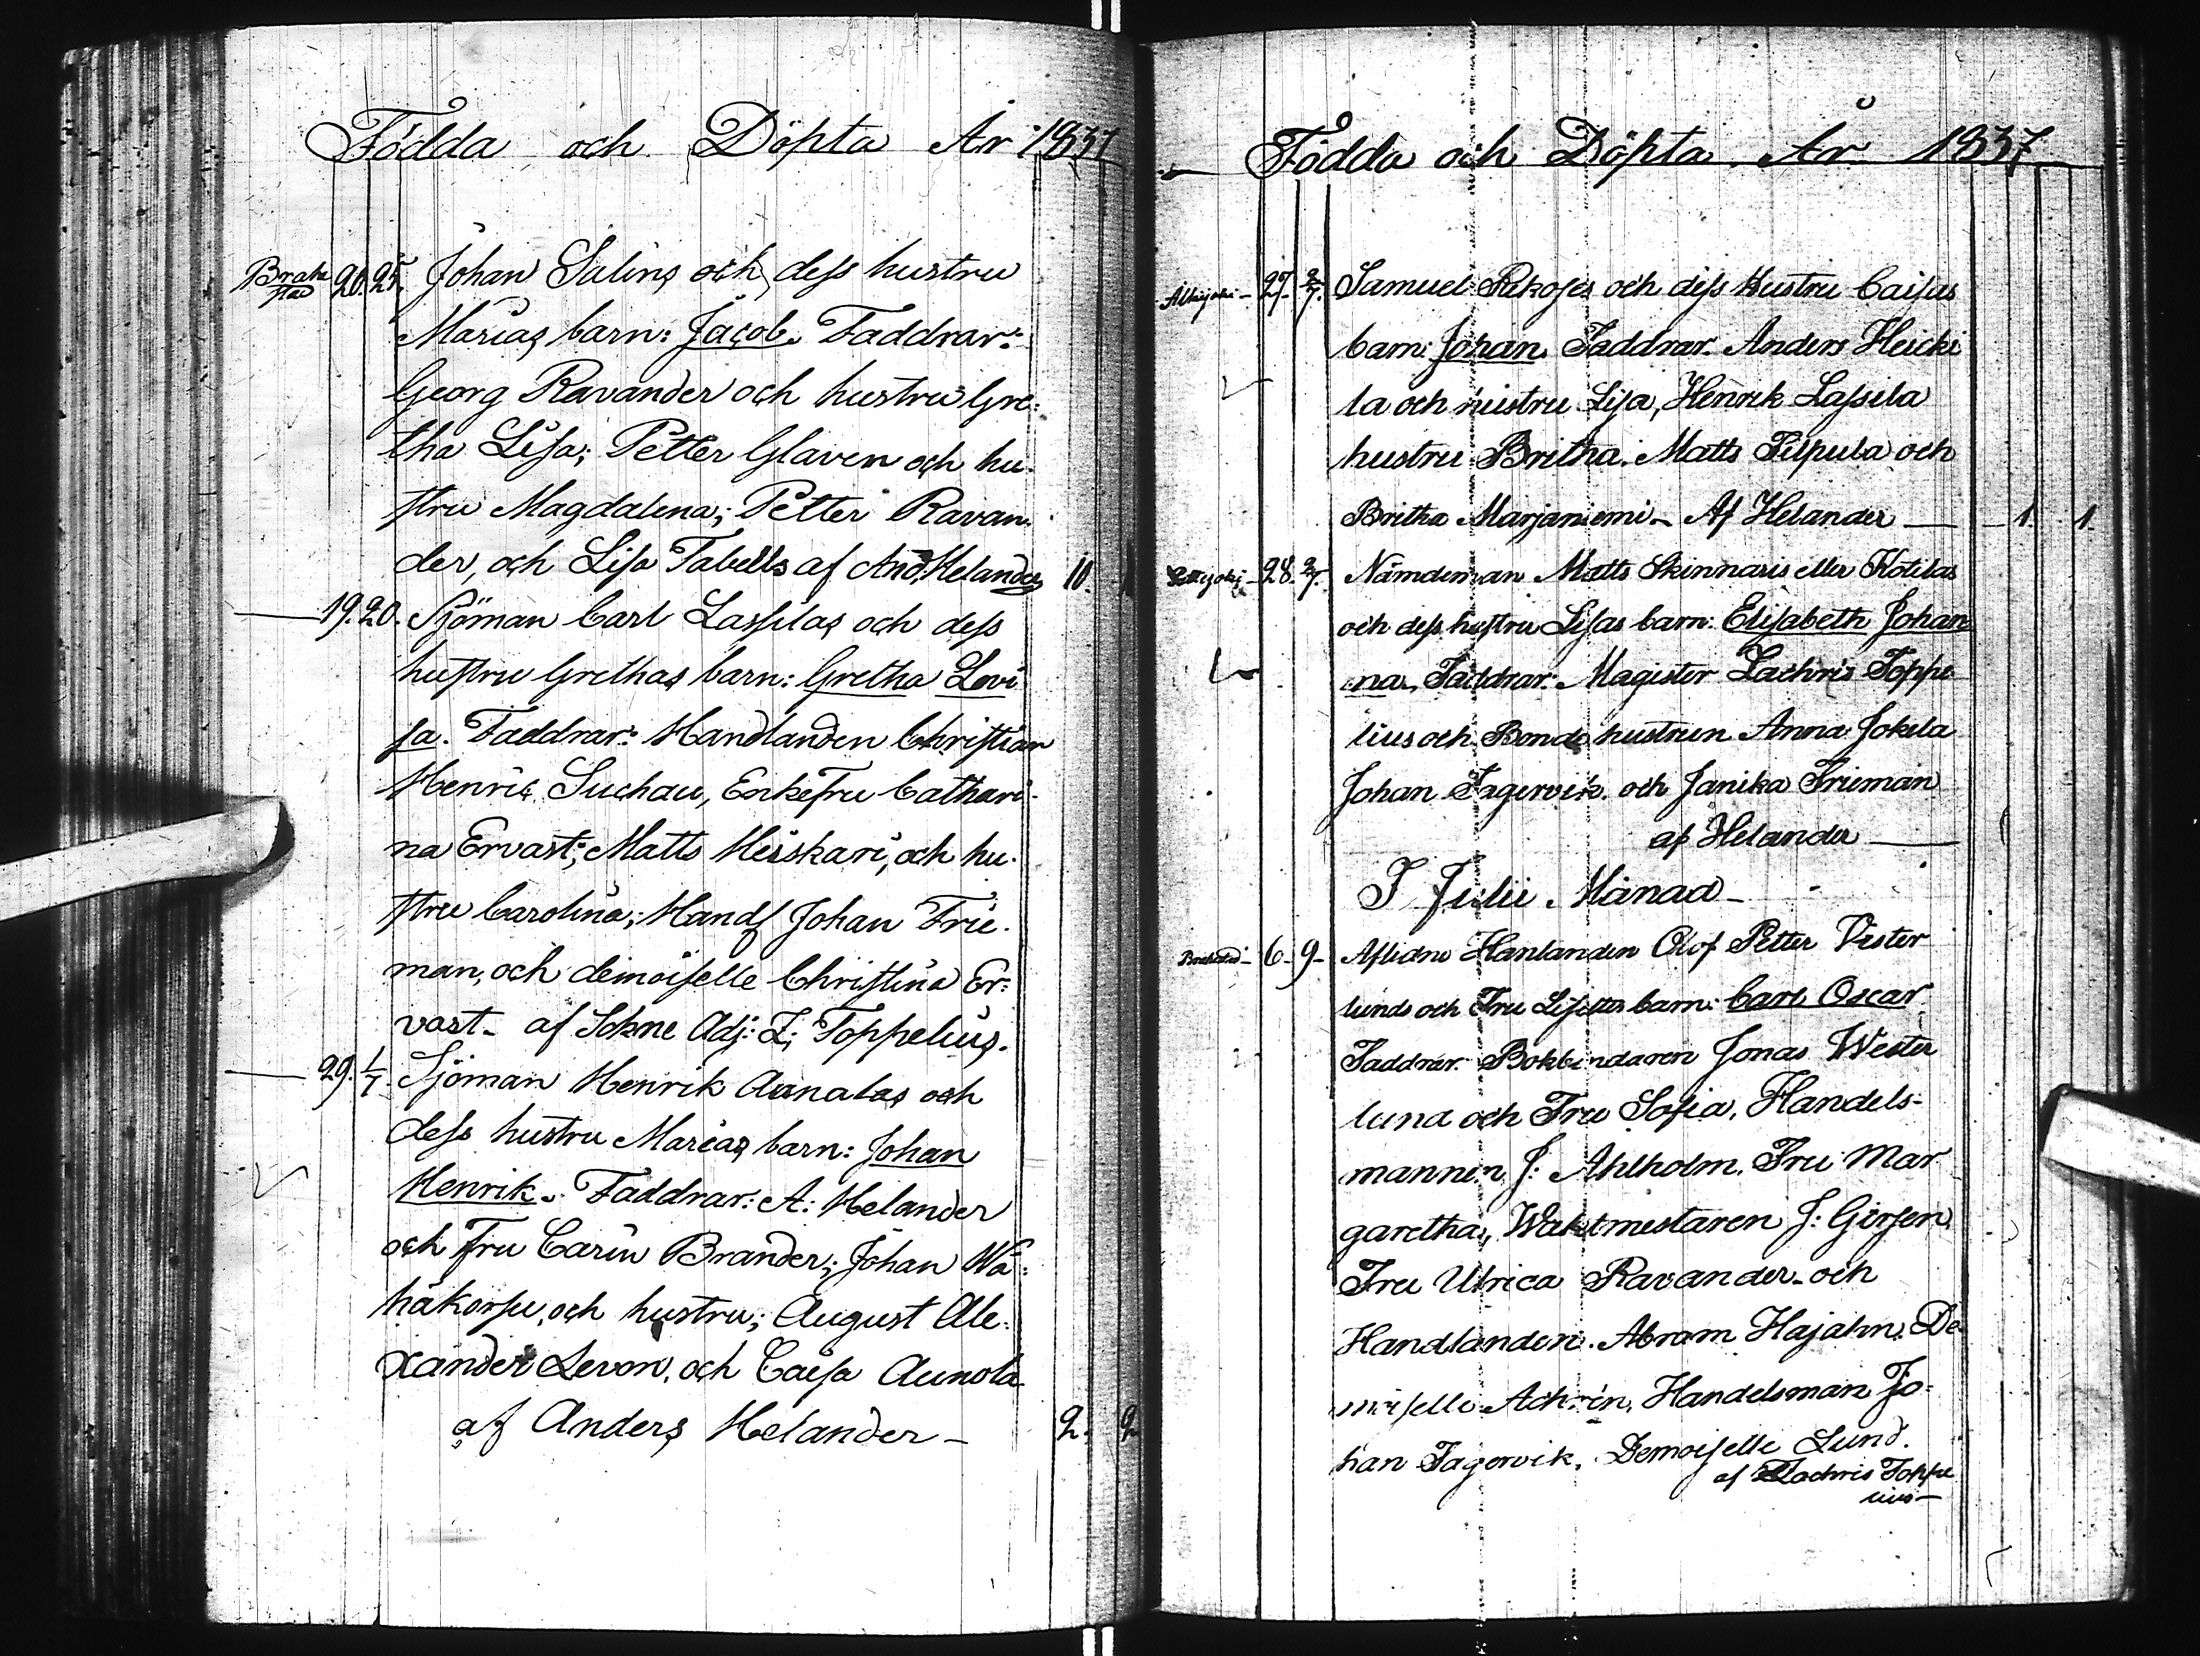 Födda och Döpta År 1837
Brahestad 20. 25. Johan Salins och dess hustru
Marias barn: Jacob. Faddrar:
Georg Ravander och hustru Gre-
tha Lisa; Petter Glaven och hu-
stru Magdalena; Petter Ravan-
der, och Lisa Tabells af And. Helander 10.
19. 20. Sjöman Carl Lassilas och dess
hustru Grethas barn: Gretha Lovi
sa. Faddrar: Handlanden Christian
Henric Suchau, Enkefru Cathari-
na Ervast; Matts Heiskari, och hu-
stru Carolina; Handl Johan Frie-
man, och demoiselle Christina Er-
vast. af Sokne Adj: Z: Toppelius.
29. 1/7. Sjöman Henrik Aunolas och
dess hustru Marias barn: Johan
Henrik. Faddrar: A: Helander
och Fru Carin Brander; Johan Wä-
häkorpu, och hustru; August Ale-
xander Levon, och Caisa Aunola
af Anders Helander 2. 2
Födda och Döpta År 1837
27. 2/7. Samuel Pakoses och dess Hustru Caisas
barn: Johan. Faddrar. Anders Heicki
la och hustru Lisa, Henrik Lassila
hustru Britha. Matts Pilpula och
Britha Marjaniemi. Af Helander 1. 1.
28. 2/7. Nämdeman Matts Skinnaris eller Kotilas
och dess hustru Lisas barn: Elisabeth Johan
na. Faddrar: Magister Zachris Toppe
lius och Bonde hustrun Anna Jokela
Johan Fagervik och Janika Frieman
af Helander
I Julii Månad
Brahestad 6. 9. Aflidne Hanlanden Olof Petter Vester
lunds och Fru Lisettes barn: Carl Oscar
Faddrar: Bokbindaren Jonas Wester
lund och Fru Sofia, Handels-
mannen J: Ahlholm. Fru Mar
garetha, Waktmestaren J: Girsen
Fru Ulrica Ravander och
Handlanden. Abram Hajahn. De-
moiselle Achrén, Handelsman Jo-
han Fagervik, Demoiselle Lund.
af Zachris Toppe
lius